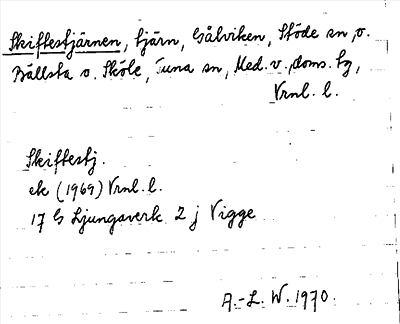 Skiftestjärnen, tjärn, Gålviken, Stöde sn, o.
Bällsta o. Sköle, Tuna sn, Med. v. doms. tg,
Vrnl. l.
Skiftestj.
ek (1969) Vrnl. l.
17 G Ljungaverk 2 j Vigge
A.-L. W. 1970.